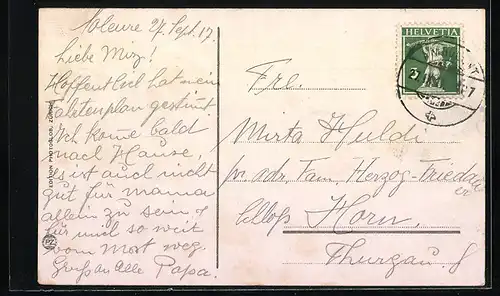 Soleure 27. Sept. 17.
Liebe Miz!
Hoffentlich hat mein
gestimmt.
Ich kome bald
nach Hause,
es ist auch nicht
gut für mama
allein zu sein, f
für mich so weit
vom Most weg.
Gruss an Alle Papa.
EDITION PHOTOGLOB, ZÜRICH
PZ
HELVETIA
5
Fre.
Mirta Huldi
pr adr. Fam. Herzog-Friedau
er
Schloss Horn,
Thurgau.